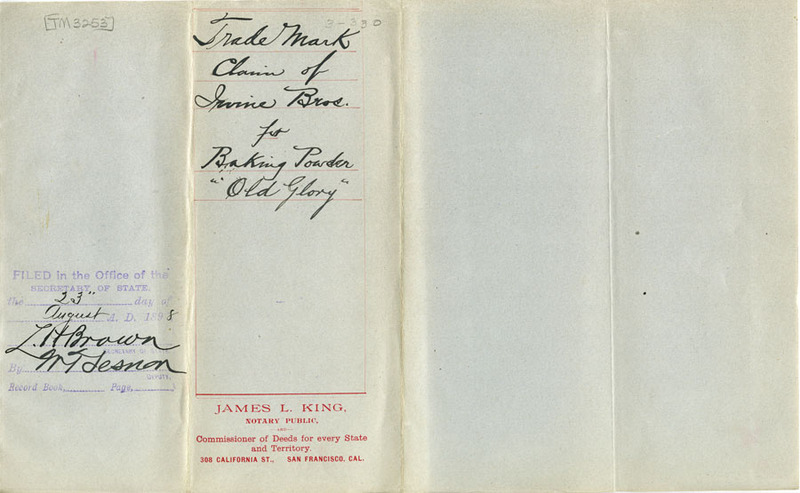 [TM3253]
3-330
Trade Mark
Claim of
Irvine Bros.
for
Baking Powder
"Old Glory"
FILED in the Office of the
SECRETARY OF STATE.
the 23" day of
August A. D. 1898
L. H. Brown
SECRETARY OF STATE
By W. T. Sesnon
DEPUTY.
Record Book, Page,
JAMES L. KING,
NOTARY PUBLIC,
AND
Commissioner of Deeds for every State
and Territory.
308 CALIFORNIA ST., SAN FRANCISCO, CAL.